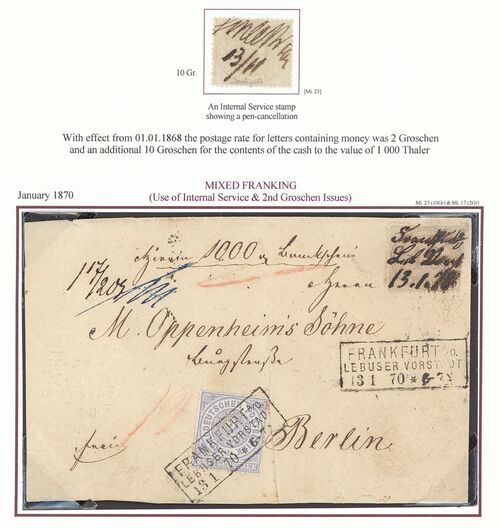 13/11
10 Gr.
[Mi 23]
An Internal Service stamp
showing a pen-cancellation
With effect from 01.01.1868 the postage rate for letters containing money was 2 Groschen
and an additional 10 Groschen for the contents of the cash to the value of 1 000 Thaler
MIXED FRANKING
January 1870
(Use of Internal Service & 2nd Groschen Issues)
Mi. 23 (10Gr) & Mi. 17 (2Gr)
Hierin 1000
Herrn
13.1.70
M. Oppenheim's Söhne
Burgstraße
FRANKFURT A/O.
LEBUSER VORSTADT
13 1 70 * 6-7 N
frei
Berlin
FRANKFURT A/O.
LEBUSER VORSTADT
13 1 70 * 6-